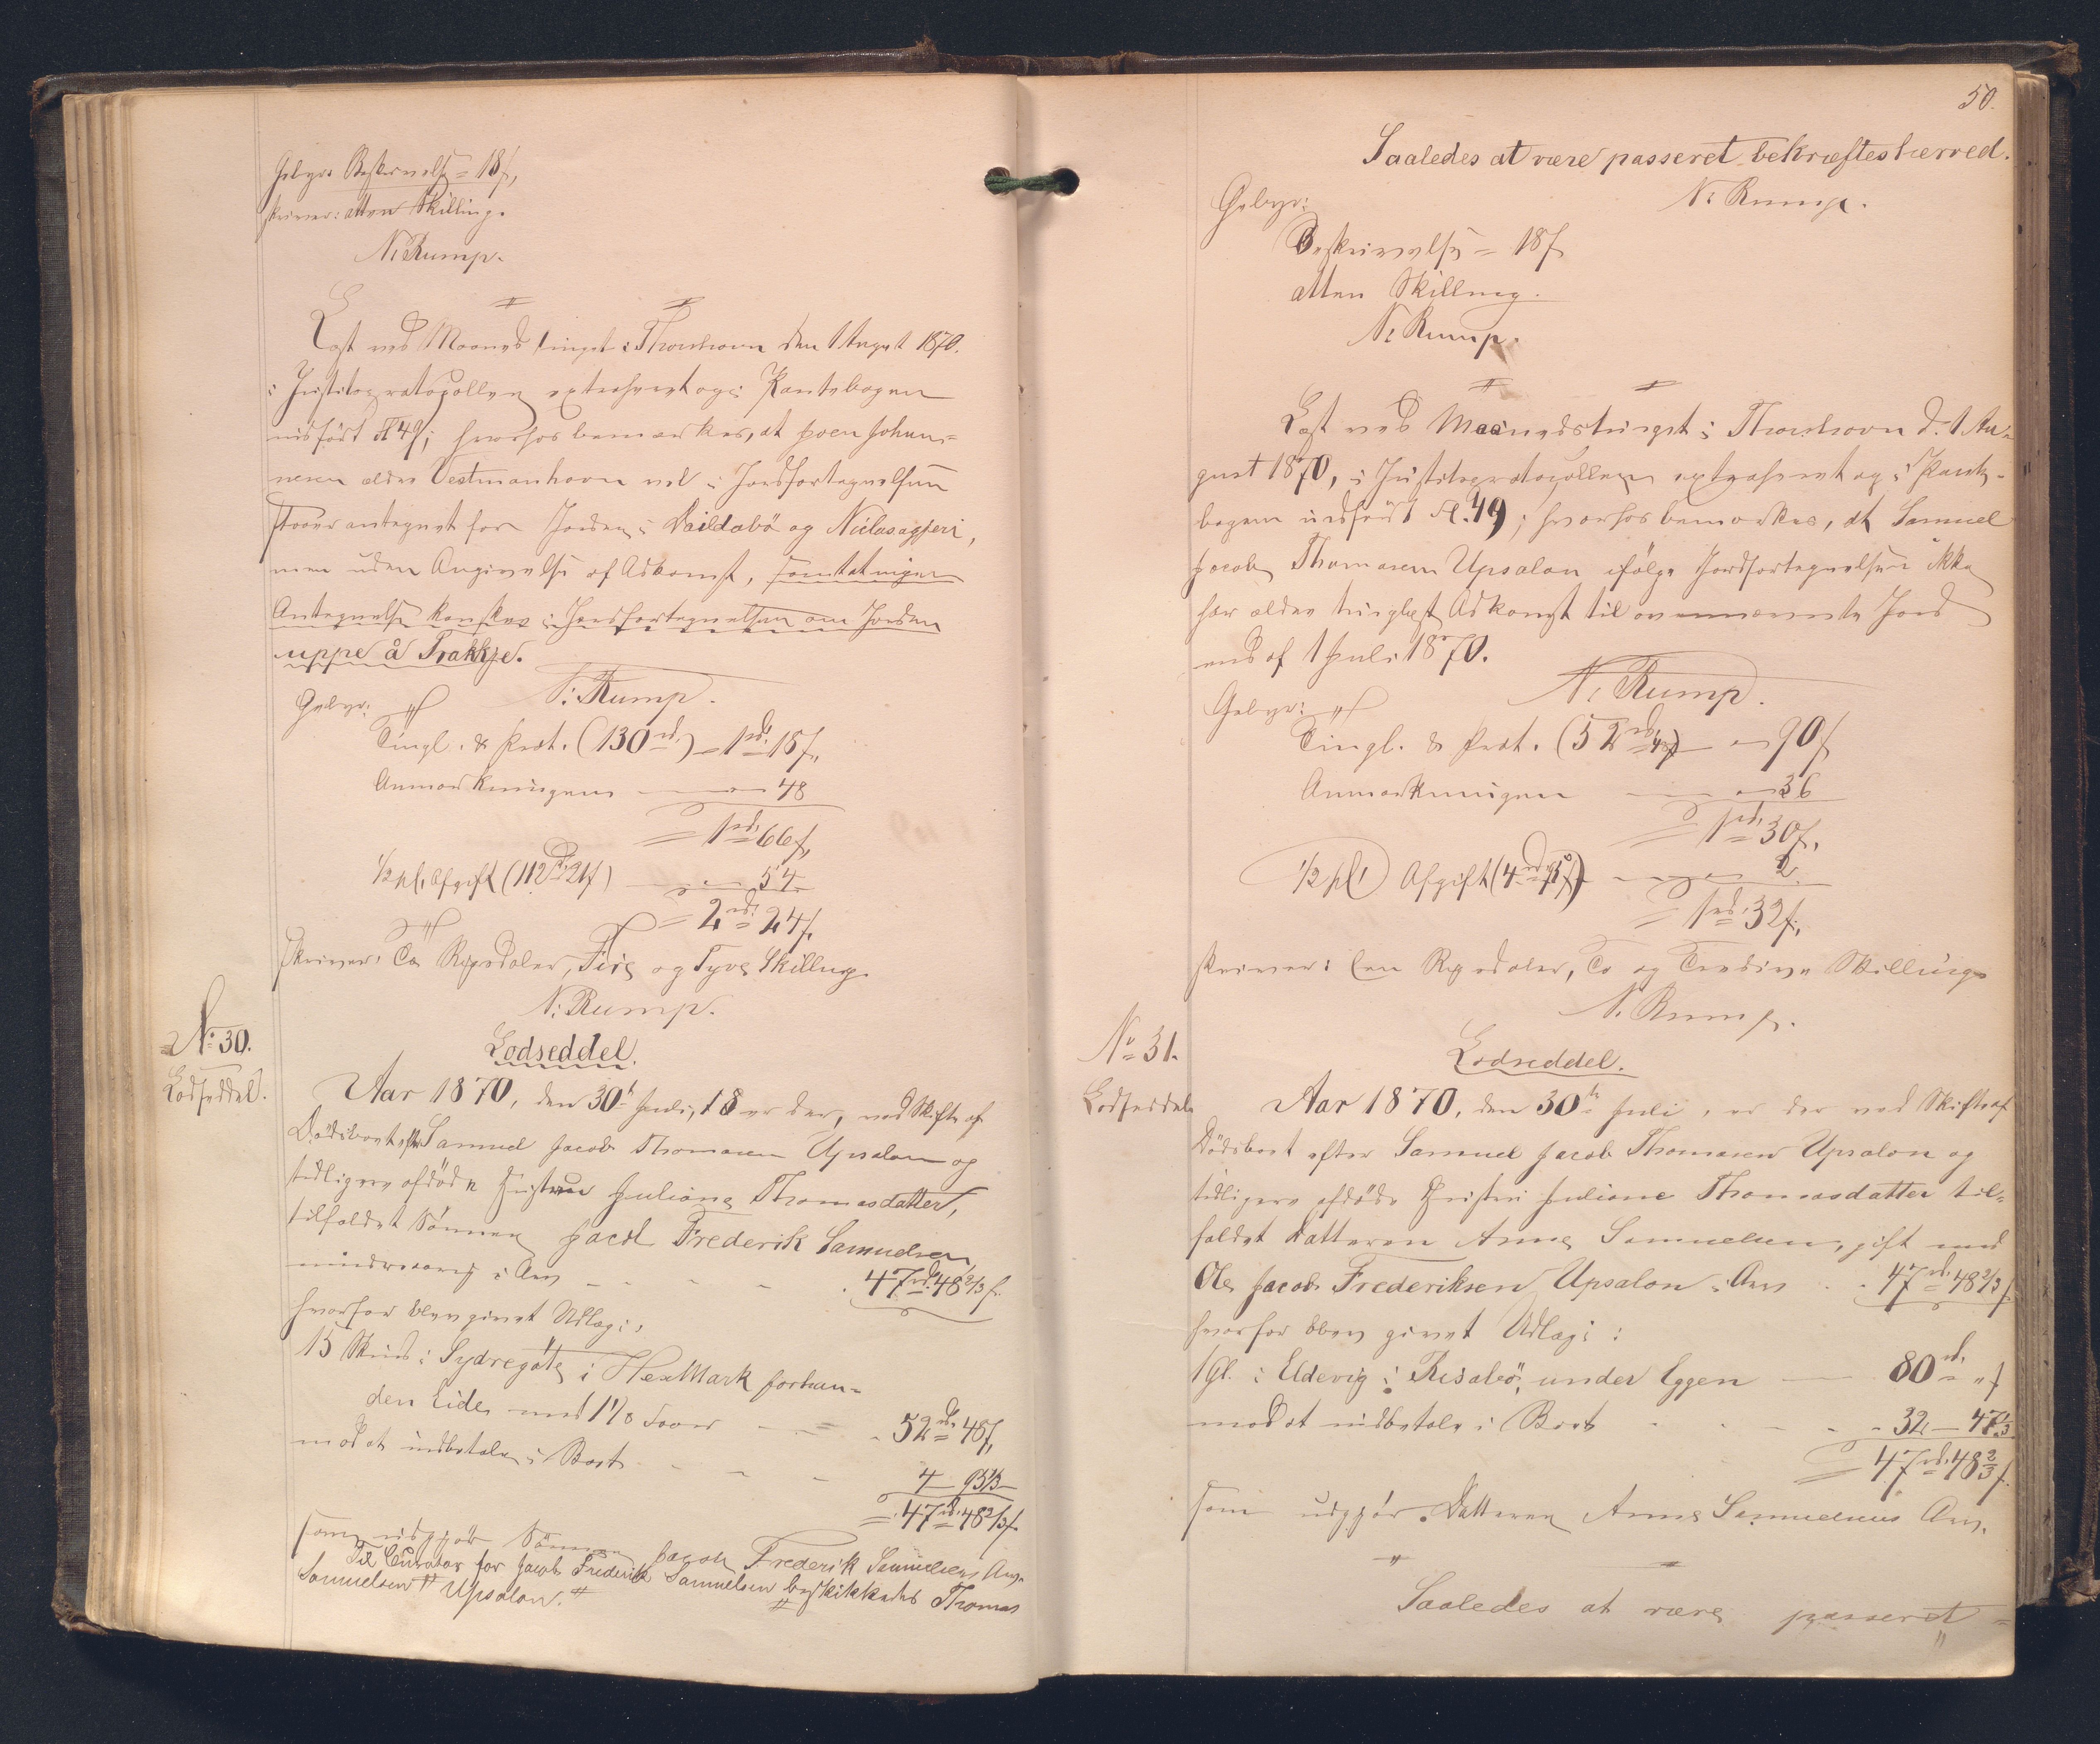 Gebyr: Beskrivelse = 18ſ,
skriver: atten Skilling.
N: Rump.
Læst ved Maanedstinget i Thorshavn den 1 August 1870.
i Justitsprotocollen extraheret og i Pantebogen
indført fol 49; hvorhos bemærkes, at Joen Johan=
nesen ældre Vestmanhavn vel i Jordfortegnelsen
staaer antegnet for Jorden i Daildabö og Niclasagjeri,
men uden Angivelse af Adkomst, samt at ingen
Antegnelse haves i Jordfortegnelsen om Jorden
uppe å Trakkje.
N: Rump.
Gebyr:
Tingl. & Prot. (130 rd.) = 1 rd. 18ſ,
Anmærkningen — 48
= 1 rd. 66ſ,
1/2 pCt. Afgift (112 rd. 21ſ) — 54
= 2 rd. 24ſ.
skriver: To Rigsdaler, Fire og Tyve Skilling.
N: Rump.
No. 30.
Lodseddel.
Lodseddel.
Aar 1870, den 30te Juli, er der, ved Skifte af
Dödsboet efter Samuel Jacob Thomasen Upsalon og
tidligere afdöde Hustrue Juliane Thomasdatter,
tilfaldet Sönnen Jacob Frederik Samuelsen,
mindreaarig i Arv - - - 47 rd. 48 2/3 ſ.
hvorfor blev givet Udlæg:
15 Skind i Sydregöte i Hex Mark forhan=
den Eide med 1 1/8 Faar - - 52 rd. 48ſ,
mod at indbetale i Boet - - -
4 — 95 1/3 —
= 47 rd. 48 2/3 ſ.
som udgjör Sönnen Jacob Frederik Samuelsens Arv.
Til Curator for Jacob Frederik Samuelsen beskikkedes Thomas
Samuelsen Upsalon.
50.
Saaledes at være passeret bekræftes herved.
N: Rump.
Gebyr:
Beskrivelse = 18ſ
atten Skilling.
N: Rump.
Læst ved Maanedstinget i Thorshavn d. 1 Au=
gust 1870, i Justitsprotocollen extraheret og i Pante=
bogen indført fol. 49; hvorhos bemærkes, at Samuel
Jacob Thomasen Upsalon ifölge Jordfortegnelsen ikke
har ældre tinglæst Adkomst til ovennævnte Jord
end af 1 Juli 1870.
N: Rump.
Gebyr:
Tingl. & Prot. (52 rd. 48ſ) — 90ſ
Anmærkningen — 36
= 1 rd. 30ſ,
1/2 pCt. Afgift — 2
= 1 rd. 32ſ,
skriver: Een Rigsdaler, To og Tredive Skilling
N. Rump.
No 31.
Lodseddel
Lodseddel.
Aar 1870, den 30te Juli, er der ved Skifte af
Dödsboet efter Samuel Jacob Thomasen Upsalon og
tidligere afdöde Hustru Juliane Thomasdatter til=
faldet Datteren Anne Samuelsen, gift med
Ole Jacob Frederiksen Upsalon i Arv . . 47 rd. 48 2/3 ſ
hvorfor blev givet Udlæg:
1 Gl. i Eldevig i Risabö, under Eggen — 80 rd. „ſ
mod at indbetale i Boet - - - 32 — 47 1/3
= 47 rd. 48 2/3 ſ.
som udgjör Datteren Anne Samuelsens Arv.
Saaledes at være passeret =